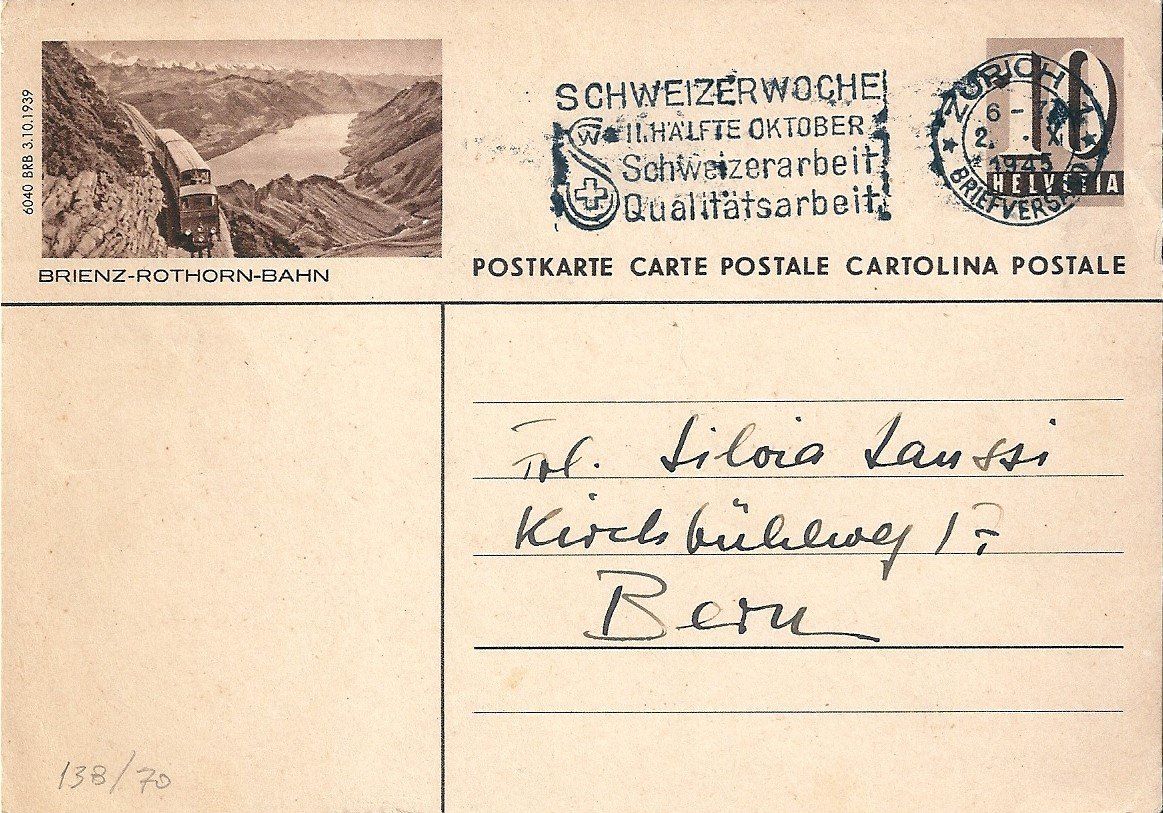 6040 BRB 3.10.1939
BRIENZ-ROTHORN-BAHN
SCHWEIZERWOCHE
W II. HÄLFTE OKTOBER
Schweizerarbeit
Qualitätsarbeit
ZÜRICH 1
6 - 7
2. X
1945
BRIEFVERSAND
10
HELVETIA
POSTKARTE CARTE POSTALE CARTOLINA POSTALE
Silvia
Kirchbühlweg 17
Bern
138/70